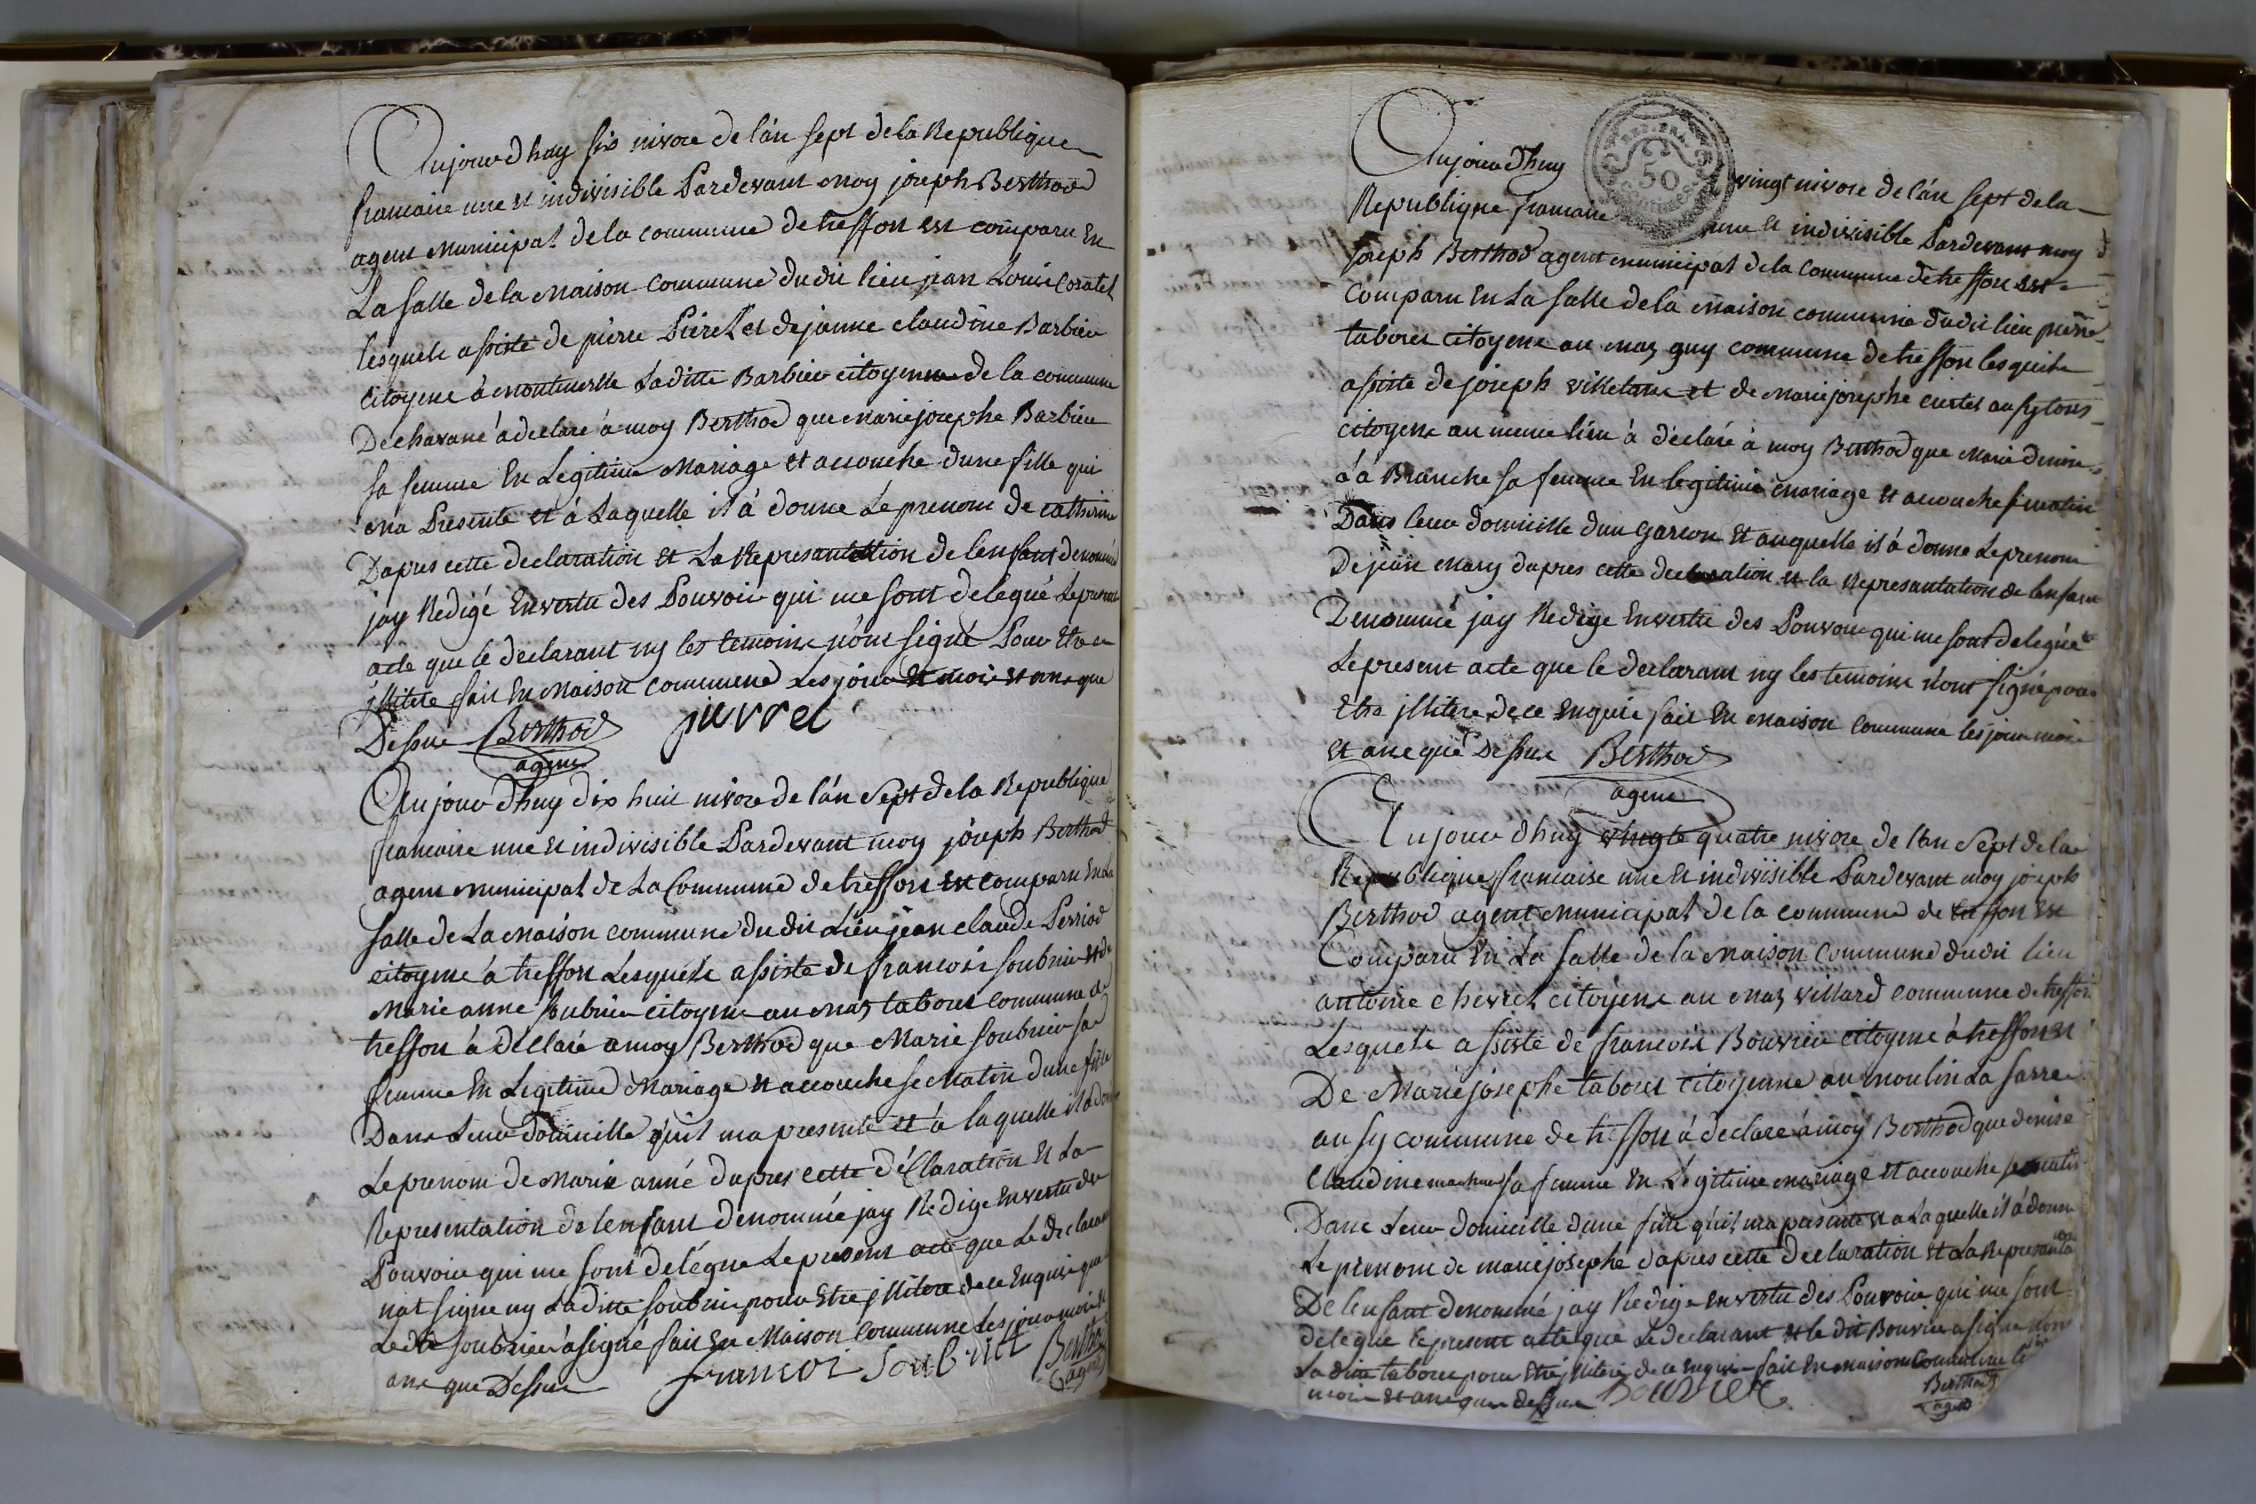 Aujourdhuy six nivose de lan sept de la Republique
francaise une et indivisible Pardevant moy joseph Berthod
agent municipal de la commune de treffort est comparu En
La salle de la maison commune dudit lieu jean Louis
lesquels assisté de pierre Pieret et de janne claudine Barbier
citoyens à laditte Barbier citoyenne de la commune
à declaré à moy Berthod que Marie josephe Barbier
sa femme En Legitime Mariage et accouche dune fille qui
ma Presenté et à Laquelle il à donne Le prenom de catherine
Dapres cette declaration et La Represantation de lenfant denommé
jay Redigé Envertu des Pouvoir qui me sont delegué Le present
acte que le declarant ny les temoins nont signé Pour Etre
jllitere fait En Maison commune Les jour et mois et ans que
Dessus Berthod pierrel
agent
Aujourdhuy dix huit nivose de lan Sept de la Republique
francaise une et indivisible Pardevant moy joseph Berthod
agent municipal de La Commune de treffort est comparu En La
salle de La maison commune dudit Lieu jean claude Perriod
citoyens à treffort Lesquels assisté de francois soubrier et de
Marie anne soubrier citoyens au maz tabouret commune de
treffort à déclaré a moy Berthod que Marie soubrier sa
femme En Legitime Mariage et accouche se Matin dune fille
Dans Leur domicille quil ma presenté et à laquelle il a donne
Le prenom de Marie anne dapres cette déClaration Et La
Representation de lenfant denommé jay Redige Envertu des
Pouvoir qui me sont delégue Le present acte que Le declarant
nat signe ny Laditte soubrier pour Etre jllitere de ce Enquis que
Ledit soubrier à signé fait En Maison commune Les jour mois Et
ans que Dessus francoi soubrier Berthod
agent
Aujourdhuy vingt nivose de lan sept de la
Republique francaise une Et indivisible Pardevant moy
joseph Berthod agent municipal de la commune de treffort est
comparu En La salle de la maison commune dudit lieu pierre
tabouret citoyens au maz guy commune de treffort lesquels
assisté de joseph et de Marie josephe
citoyens au meme lieu à déclaré à moy Berthod que Marie denise
La Branche sa femme En legitime mariage et accouche se matin
Dans leur domicille dun Garcon Et auquelle il à donne Le prenom
De jean Mary dapres cette declaration et la Represantation de lenfant
Denommé jay Redige Envertu des Pouvoir qui me sont delegué
Le present acte que le declarant ny les temoins n'ont signé pour
Etre jllitere de ce Enquis fait En maison commune les jour mois
et ans que Dessus Berthod
agent
Aujourdhuy vingte quatre nivose de lan Sept de la
Republique francaise une Et indivisible Pardevant moy joseph
Berthod agent municipal de la commune de treffort Est
Comparu En La salle de la Maison commune dudit lieu
antoine chevret citoyens au maz villard commune de treffort
Lesquels assisté de francois Bouvier citoyens à treffort et
De Marie josephe tabouret citoyenne au moulin La sarra
aussy commune de treffort à declaré à moy Berthod que denise
Claudine sa femme En Légitime mariage et accouche se matin
Dans Leur domicille dune fille quil ma presanté et a Laquelle il à donne
Le prenom de marie josephe dapres cette declaration et La Represantation
De lenfant denommé jay Redige Envertu des Pouvoir qui me sont
delegue le present acte que Le declarant et le dit Bouvier a signe non
La ditte tabouret pour Etre jllitere de ce enquis fait En maison commune les jour
mois et ans que dessus Bouvier Berthod
agent
50